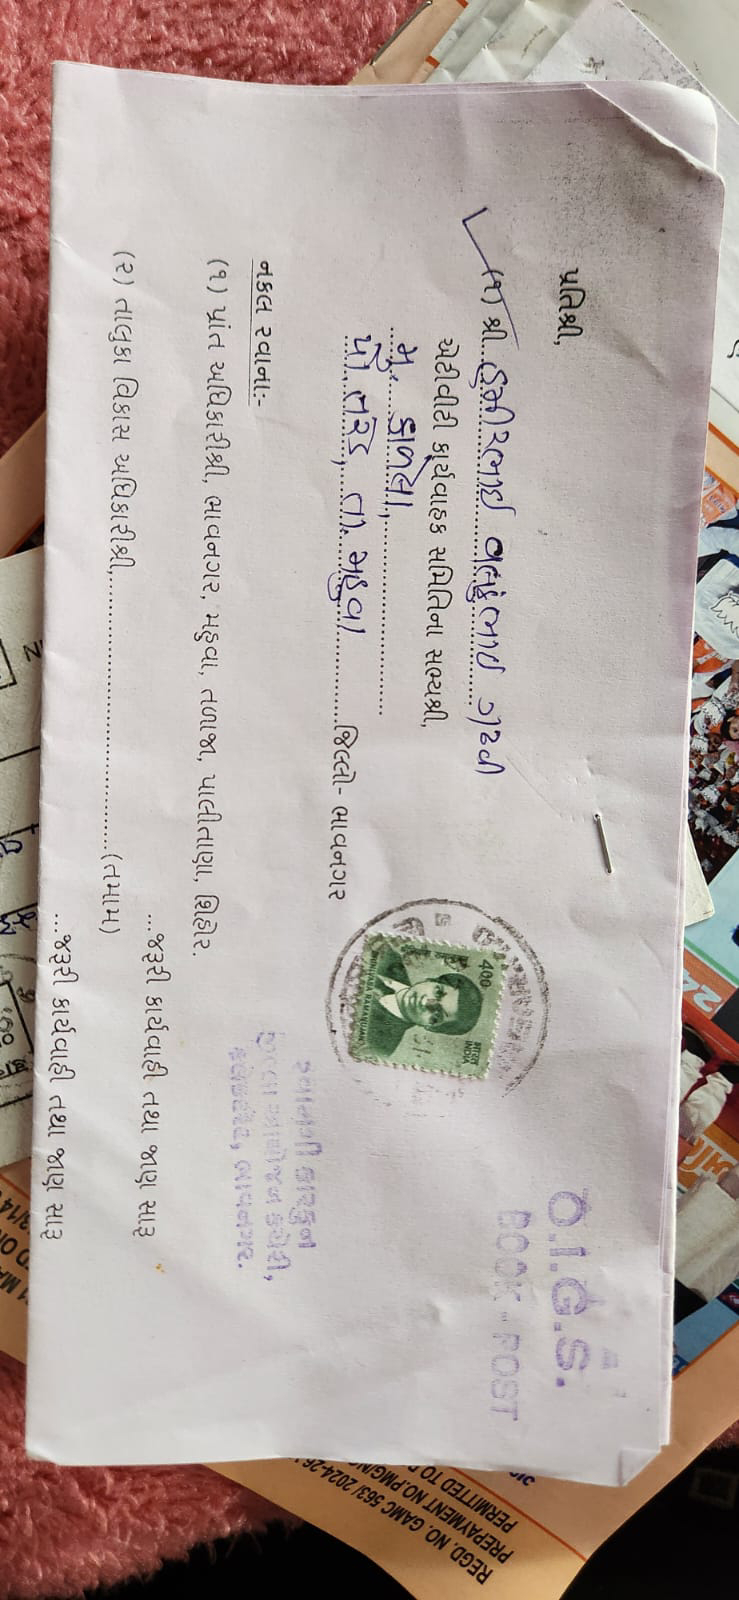 O.I.G.S.
BOOK-POST
પ્રતિશ્રી,
(૧) શ્રી હમીરભાઇ
એટીવીટી કાર્યવાહક સમિતિના સભ્યશ્રી,
મુ. કાળેલા,
પો. તરેડ, તા. મહુવા જિલ્લો- ભાવનગર
400
भारत
INDIA
SRINIVASA RAMANUJAN
રવાનગી કારકુન
જિલ્લા આયોજન કચેરી,
કલેકટર, ભાવનગર.
નકલ રવાના:-
(૧) પ્રાંત અધિકારીશ્રી, ભાવનગર, મહુવા, તળાજા, પાલીતાણા, શિહોર.
...જરૂરી કાર્યવાહી તથા જાણ સારૂ
(૨) તાલુકા વિકાસ અધિકારીશ્રી,..............................(તમામ)
...જરૂરી કાર્યવાહી તથા જાણ સારૂ
REGD. NO. GAMC 563/ 2024-26
PREPAYMENT NO.PMG/NG
PERMITTED TO
24